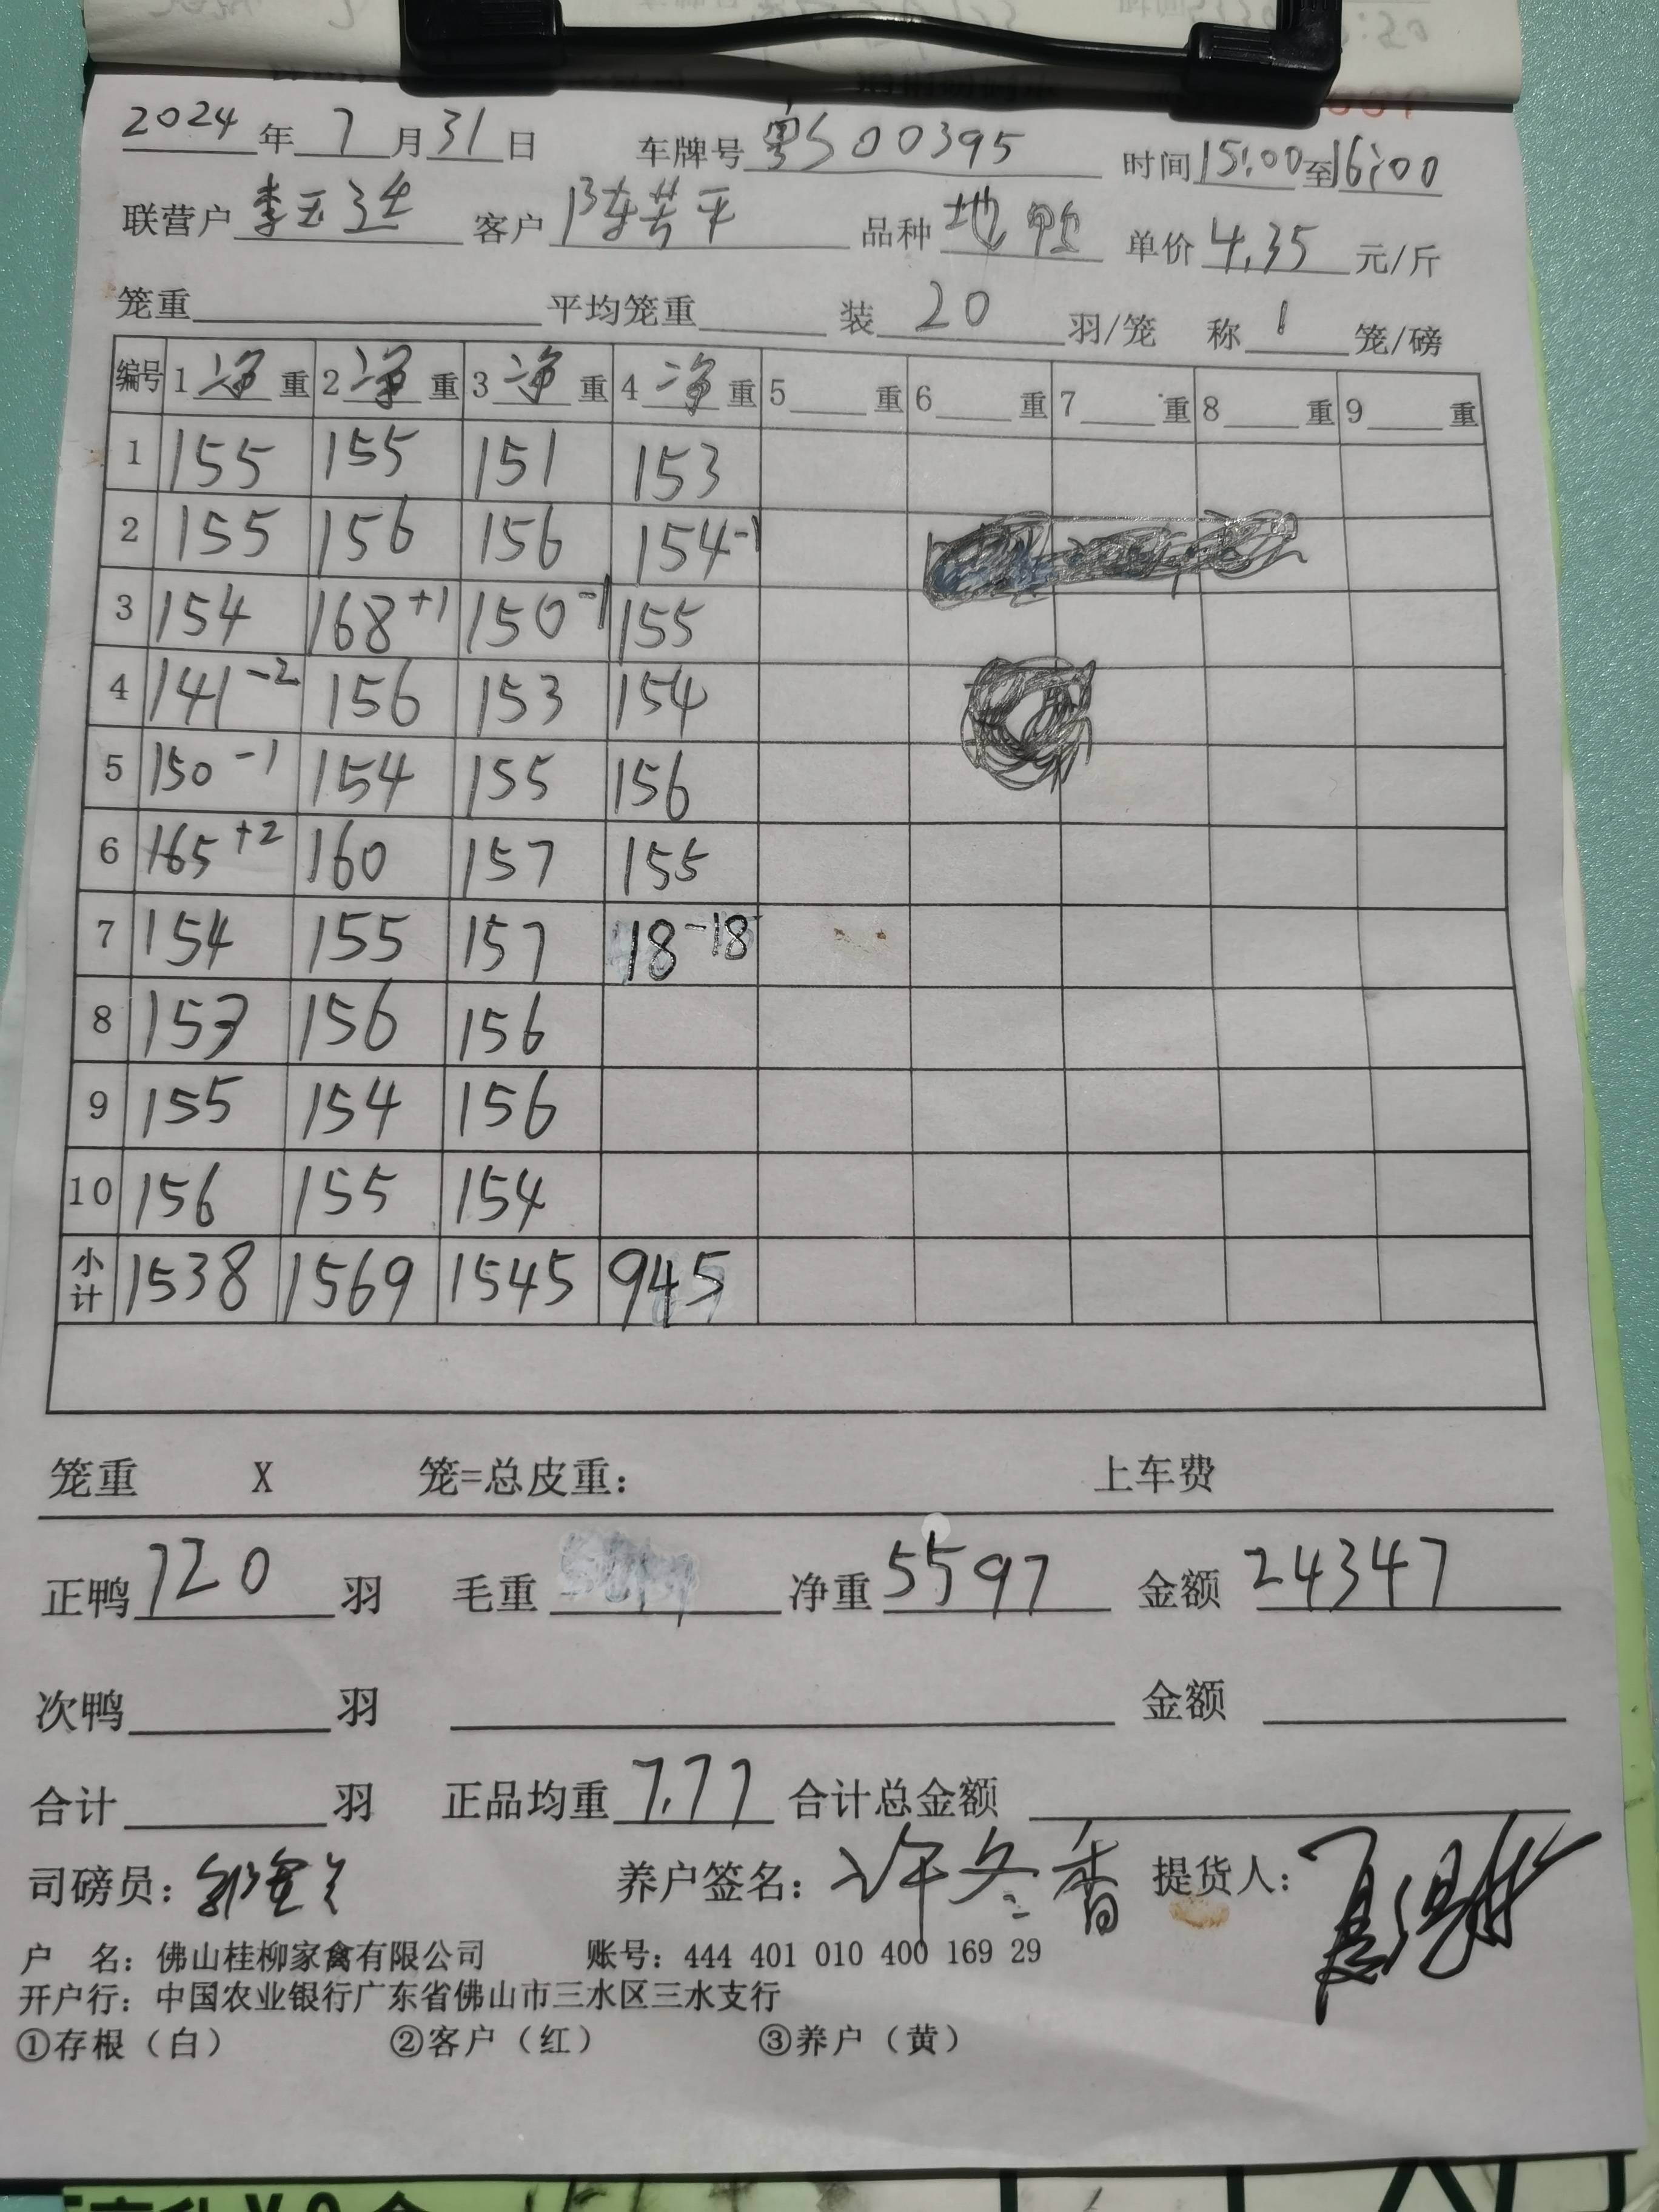 2024年7月31日 车牌号粤S00395 时间15:00至16:00
联营户李玉 客户陈芳平 品种地鸭 单价4.35元/斤
笼重 平均笼重 装20羽/笼 称1笼/磅
编号 1净重 2净重 3净重 4净重 5重 6重 7重 8重 9重
1 155 155 151 153
2 155 156 156 154-1
3 154 168+1 150-1 155
4 141-2 156 153 154
5 150-1 154 155 156
6 165+2 160 157 155
7 154 155 157 18-18
8 153 156 156
9 155 154 156
10 156 155 154
小计 1538 1569 1545 945
笼重 X 笼=总皮重: 上车费
正鸭720羽 毛重 净重5597 金额24347
次鸭 羽 金额
合计 羽 正品均重7.77 合计总金额
司磅员: 养户签名:许冬香 提货人:
户 名:佛山桂柳家禽有限公司 账号:444 401 010 400 169 29
开户行:中国农业银行广东省佛山市三水区三水支行
①存根（白） ②客户（红） ③养户（黄）